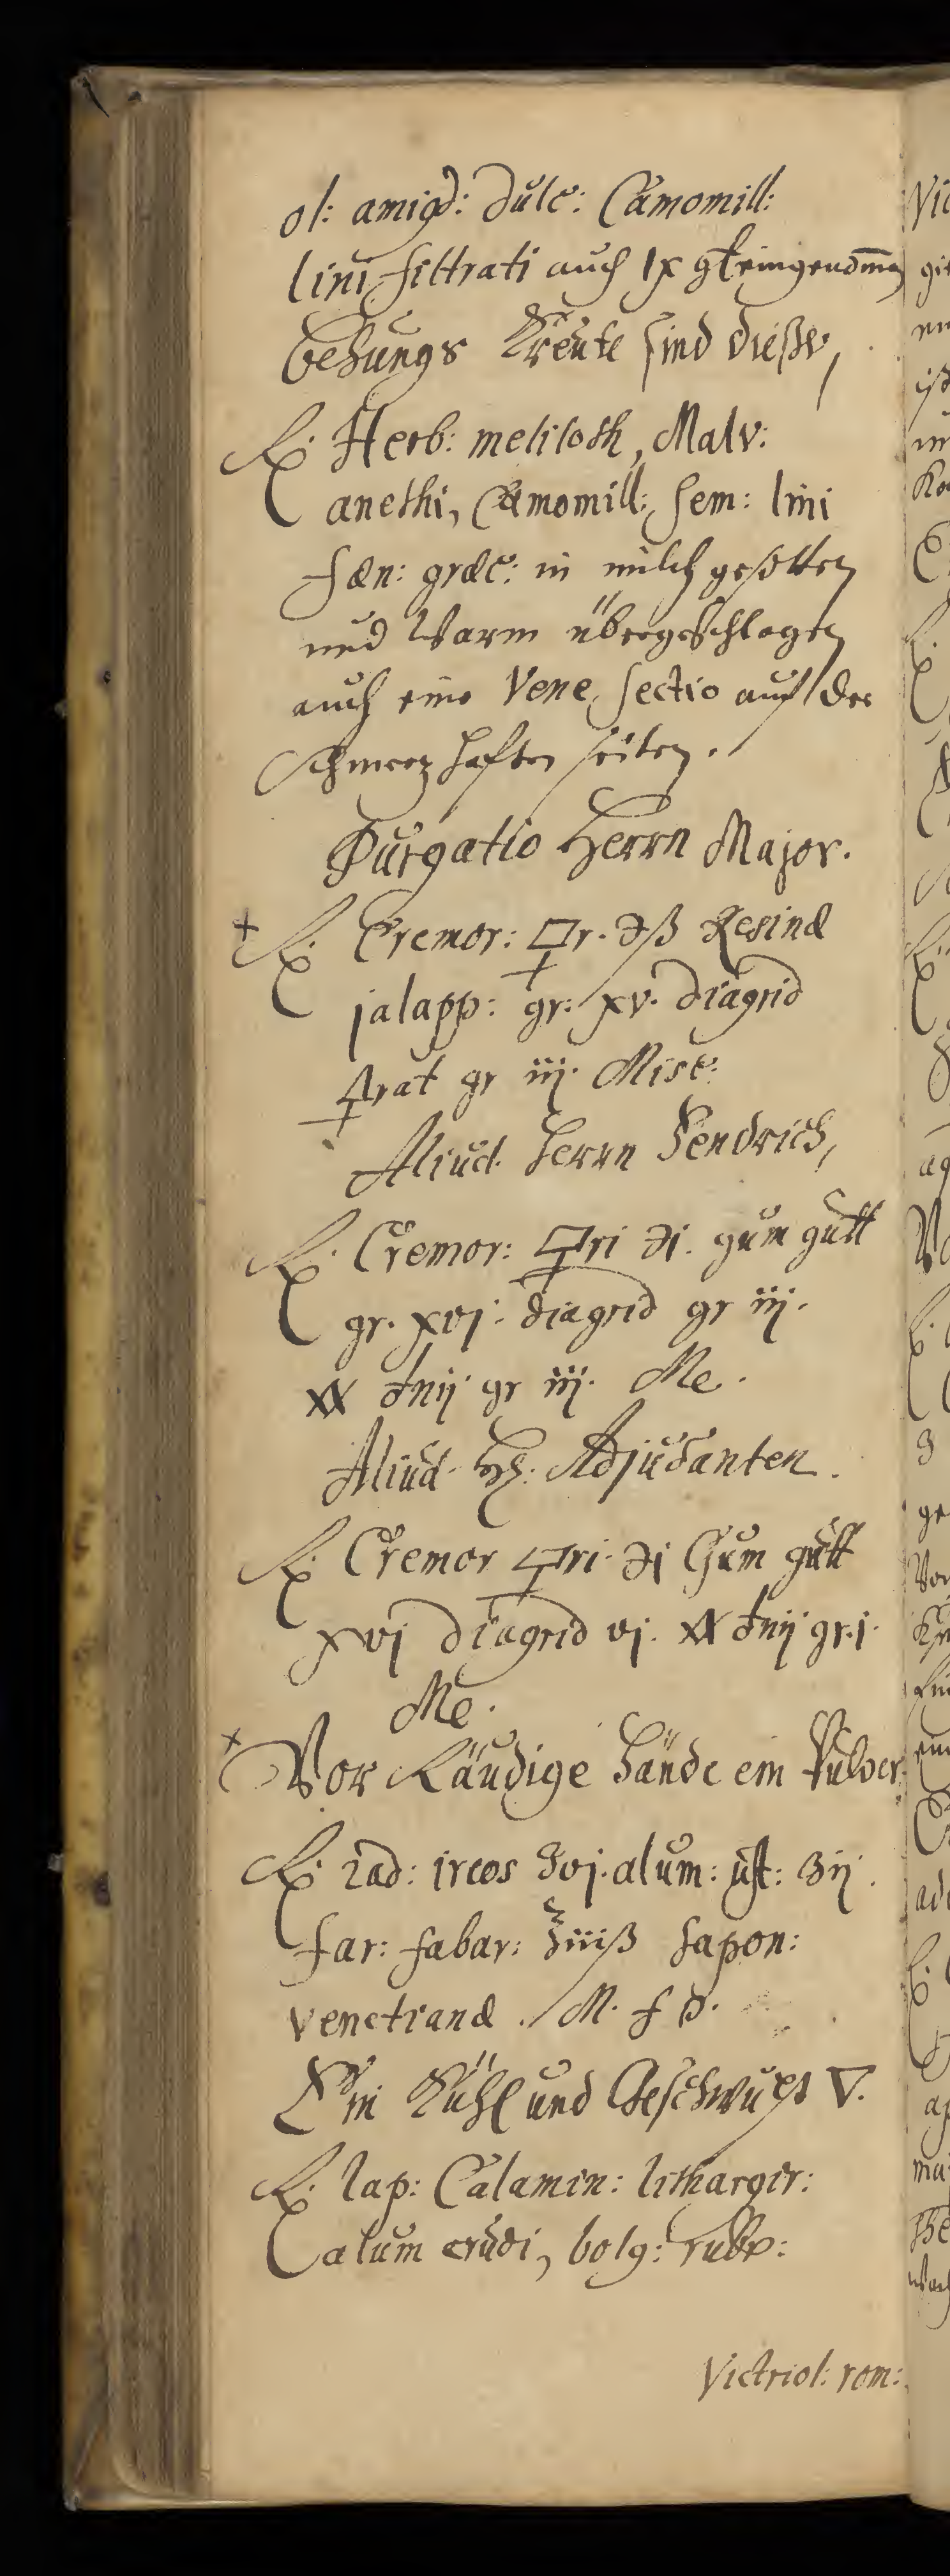 ol: amigd: dulc: Camomill:
lini filtrati auch IX gt eingenom̄en
Behungs Kreute sind dieße,
℞. Herb: meliloth, Malv:
anethi, Camomill: Sem: lini
fæn: græc: in milch gesotten
und Warm übergeschlagen
auch eine Vene Sectio auf der
schmerzhaften seiten.
Purgatio Herrn Major.
+ ℞. Cremor: 🜿r. ℈ß Resinæ
jalapp: gr: xv. diagrid
🜍rat gr iij. Misc:
Aliud Herrn Fendrich,
℞. Cremor: 🜿ri ℈j. gum gutt
gr. xvj. diagrid gr iij.
XX ♂nij gr iij. Me.
Aliud H: Adjudanten.
℞. Cremor 🜿ri ℈j Gum gutt
xvj diagrid vj. XX ♂nij gr.j.
Me.
+ Vor Räudige Hände ein Pulver
℞. rad: ireos ʒvj. alum: ust: ʒij.
far: fabar: ℥iiiß Sapon:
venetianæ. M. f p.
Ein Kühl und Geschwulst 🜄.
℞. lap: Calamin: lithargir:
alum crudi, bolg: rubr:
Victriol: rom: